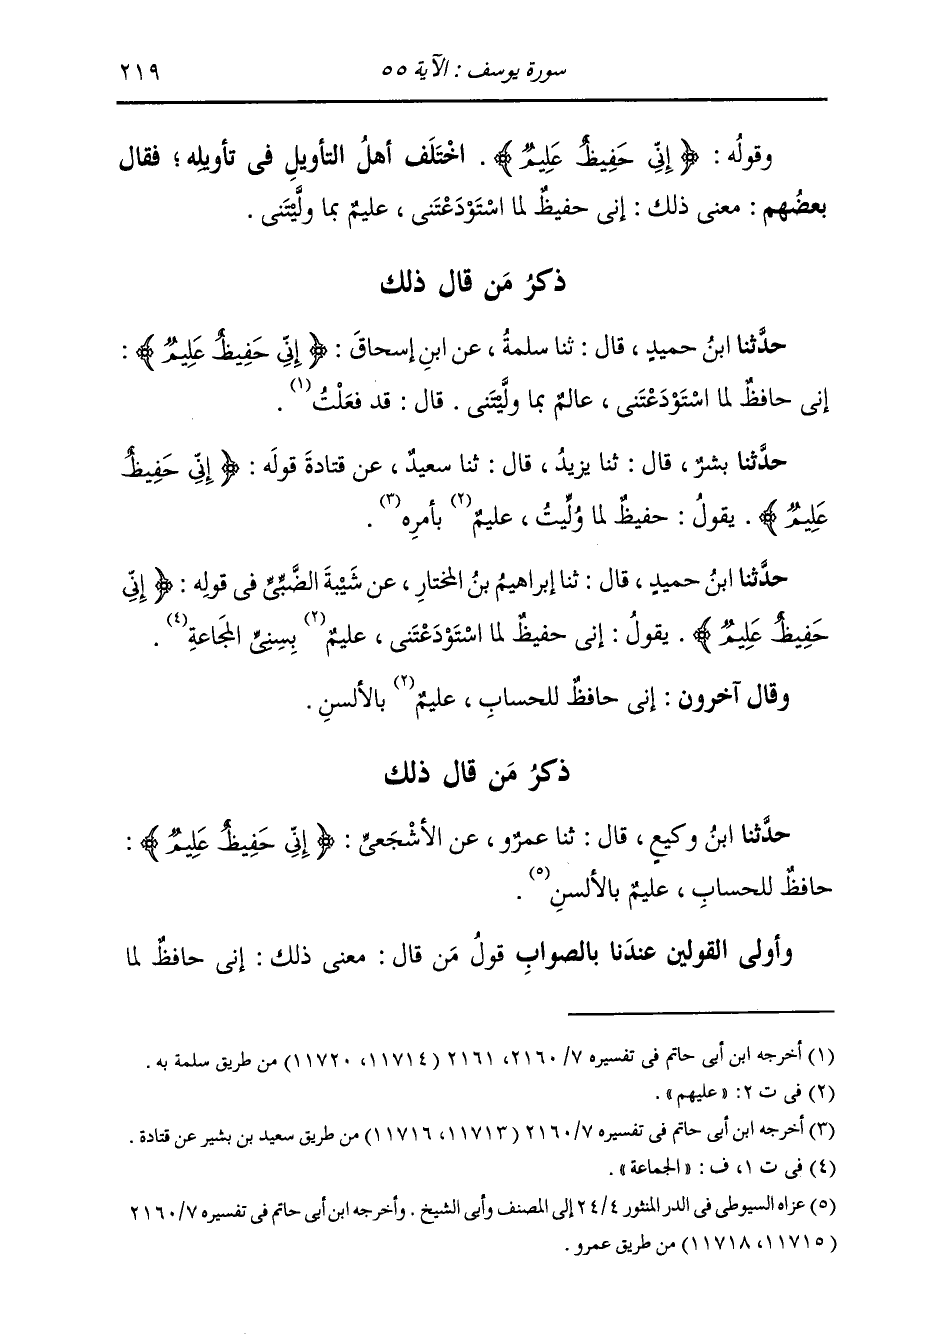 سورة يوسف : الآية ٥٥ ٢١٩
وقولُه : ﴿ إِنِّي حَفِيظٌ عَلِيمٌ ﴾ . اخْتَلَف أهلُ التأويلِ فى تأويلِه ؛ فقال
بعضُهم : معنى ذلك : إنى حفيظٌ لما اسْتَوْدَعْتَنى ، عليمٌ بما ولَّيْتَنى .
ذكرُ مَن قال ذلك
حدَّثنا ابنُ حميدٍ ، قال : ثنا سلمةُ ، عن ابنِ إسحاقَ : ﴿ إِنِّي حَفِيظٌ عَلِيمٌ ﴾ :
إنى حافظٌ لما اسْتَوْدَعْتَنى ، عالمٌ بما ولَّيْتَنى . قال : قد فعَلْتُ (١) .
حدَّثنا بشرٌ ، قال : ثنا يزيدُ ، قال : ثنا سعيدٌ ، عن قتادةَ قولَه : ﴿ إِنِّي حَفِيظٌ
عَلِيمٌ ﴾ . يقولُ : حفيظٌ لما وُلِّيتُ ، عليمٌ (٢) بأمرِه (٣) .
حدَّثنا ابنُ حميدٍ ، قال : ثنا إبراهيمُ بنُ المختارِ ، عن شَيْبةَ الضَّبِّىِّ فى قولِه : ﴿ إِنِّي
حَفِيظٌ عَلِيمٌ ﴾ . يقولُ : إنى حفيظٌ لما اسْتَوْدَعْتَنى ، عليمٌ (٢) بِسِنِىِّ المَجاعةِ (٤) .
وقال آخرون : إنى حافظٌ للحسابِ ، عليمٌ (٢) بالألسنِ .
ذكرُ مَن قال ذلك
حدَّثنا ابنُ وكيعٍ ، قال : ثنا عمرٌو ، عن الأشْجَعىِّ : ﴿ إِنِّي حَفِيظٌ عَلِيمٌ ﴾ :
حافظٌ للحسابِ ، عليمٌ بالألسنِ (٥) .
وأولى القولين عندَنا بالصوابِ قولُ مَن قال : معنى ذلك : إنى حافظٌ لما
(١) أخرجه ابن أبى حاتم فى تفسيره ٢١٦٠/٧، ٢١٦١ (١١٧١٤، ١١٧٢٠) من طريق سلمة به .
(٢) فى ت ٢: « عليهم » .
(٣) أخرجه ابن أبى حاتم فى تفسيره ٢١٦٠/٧ (١١٧١٣، ١١٧١٦) من طريق سعيد بن بشير عن قتادة .
(٤) فى ت ١، ف : « الجماعة » .
(٥) عزاه السيوطى فى الدر المنثور ٢٤/٤ إلى المصنف وأبى الشيخ . وأخرجه ابن أبى حاتم فى تفسيره ٢١٦٠/٧
(١١٧١٥، ١١٧١٨) من طريق عمرو .